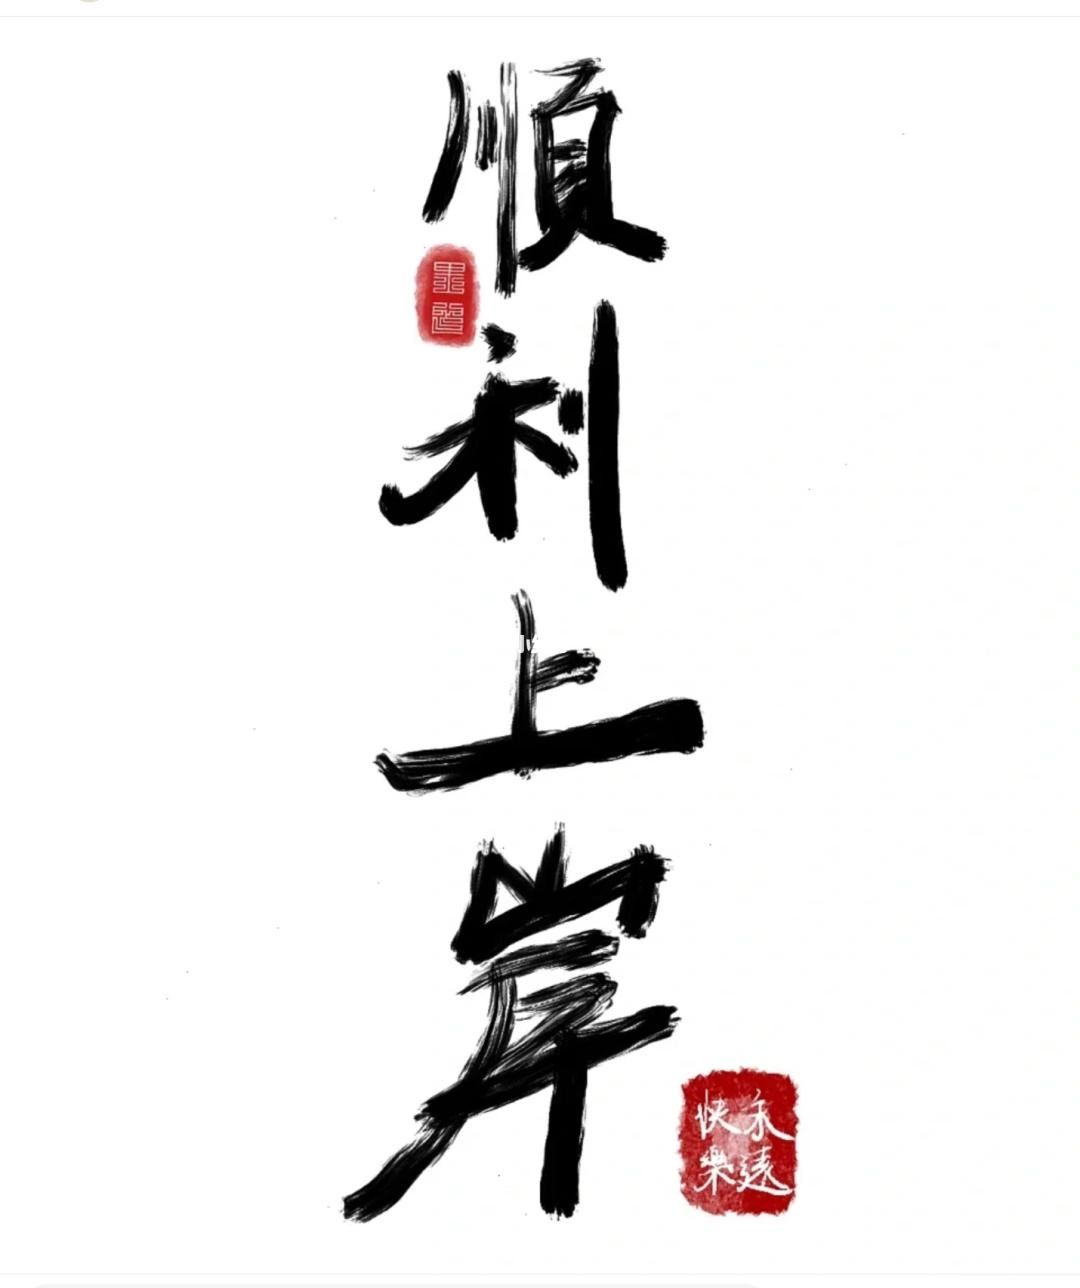 順利上岸
永遠
快樂